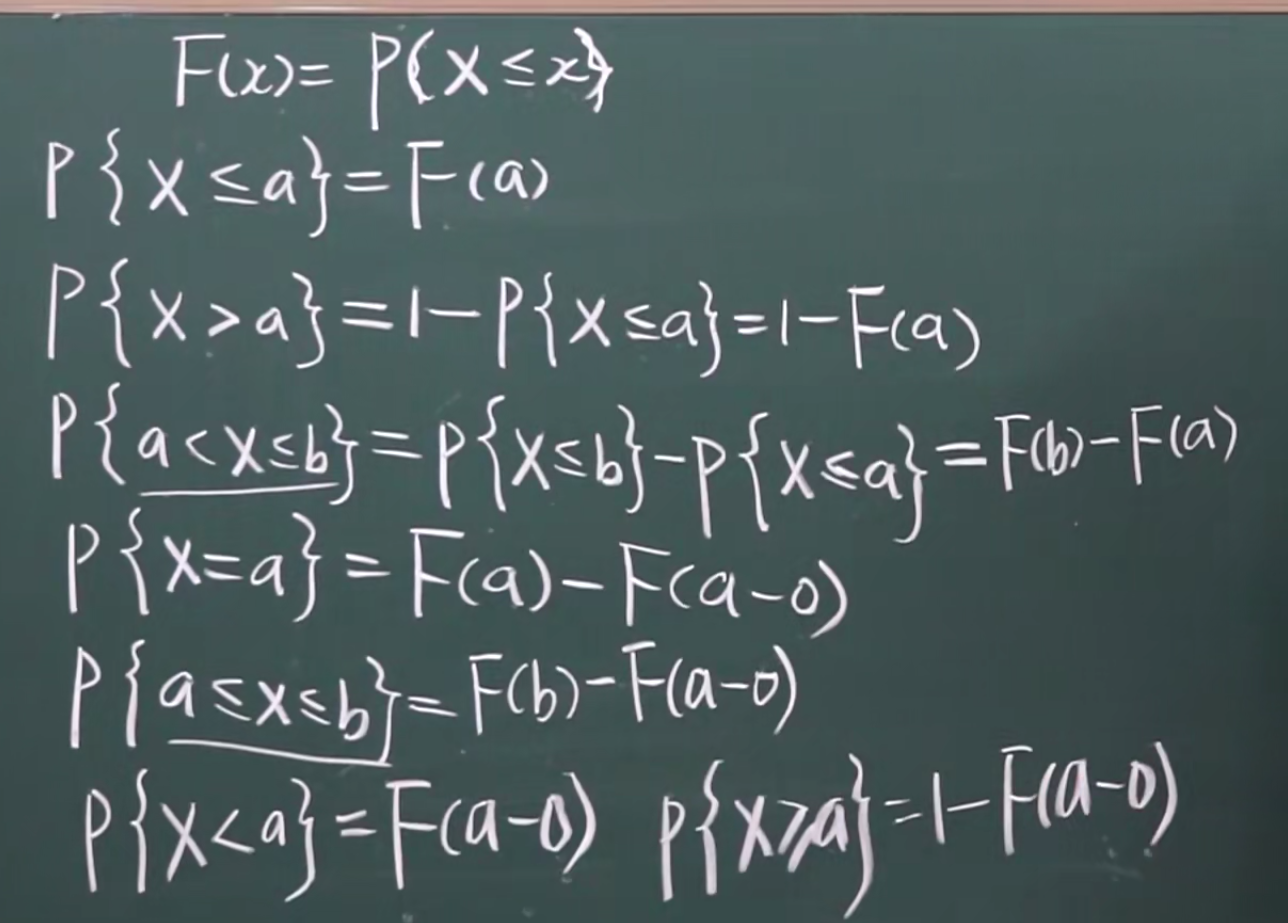 F(x)= P{X≤x}
P{X≤a}=F(a)
P{X>a}=1-P{X≤a}=1-F(a)
P{a<X≤b}=P{X≤b}-P{X≤a}=F(b)-F(a)
P{X=a}=F(a)-F(a-0)
P{a≤X≤b}=F(b)-F(a-0)
P{X<a}=F(a-0) P{X≥a}=1-F(a-0)